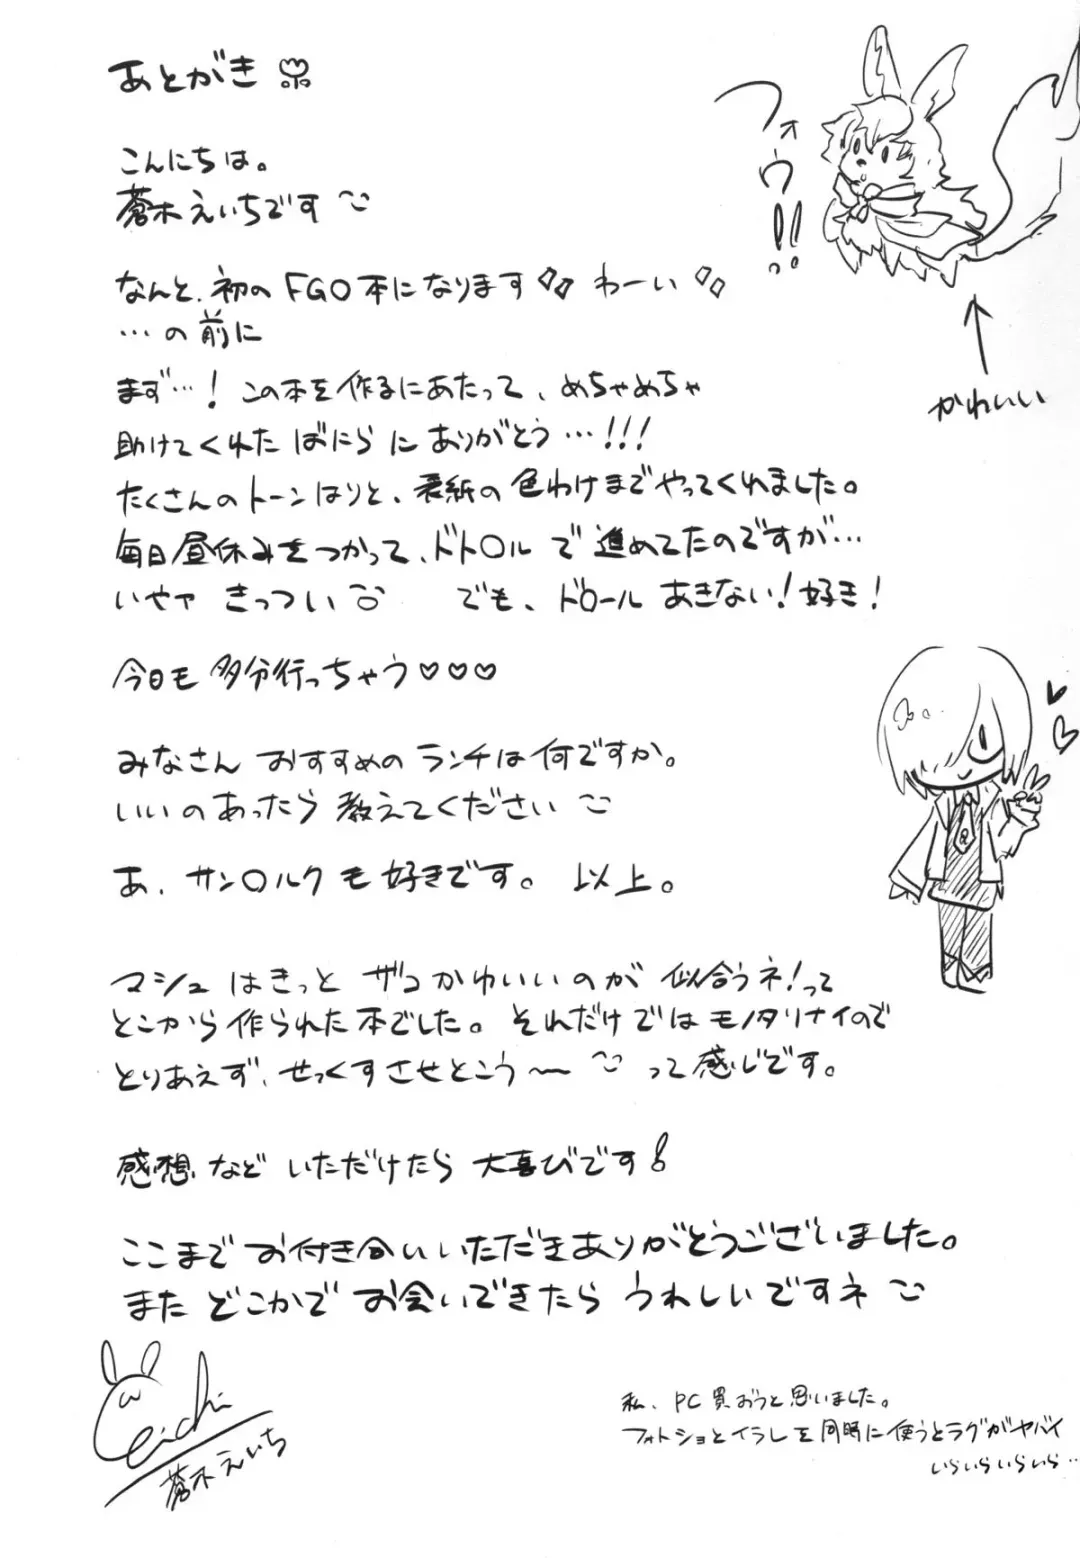 あとがき
フォウ!!
こんにちは。
蒼木えいちです
なんと、初のFGO本になります わーい
…の前に
かわいい
まず…！この本を作るにあたって、めちゃめちゃ
助けてくれた ばにら に ありがとう…!!!
たくさんのトーンはりと、表紙の色わけまでやってくれました。
毎日昼休みをつかって、ドト〇ル で進めてたのですが…
いやァ きっつい でも、ド〇ール あきない！好き！
今日も多分行っちゃう♡♡♡
みなさん おすすめのランチは何ですか。
いいのあったら教えてください
あ、サン〇ルクも好きです。 以上。
マシュはきっと ザコかわいいのが 似合うネ！って
とこから作られた本でした。それだけではモノタリナイので
とりあえず、せっくすさせとこう〜 って感じです。
感想など いただけたら 大喜びです！
ここまでお付き合いいただきありがとうございました。
また どこかで お会いできたら うれしいですネ
eichi
蒼木えいち
私、PC買おうと思いました。
フォトショとイラレを同時に使うとラグがヤバイ
いらいらいらいら…